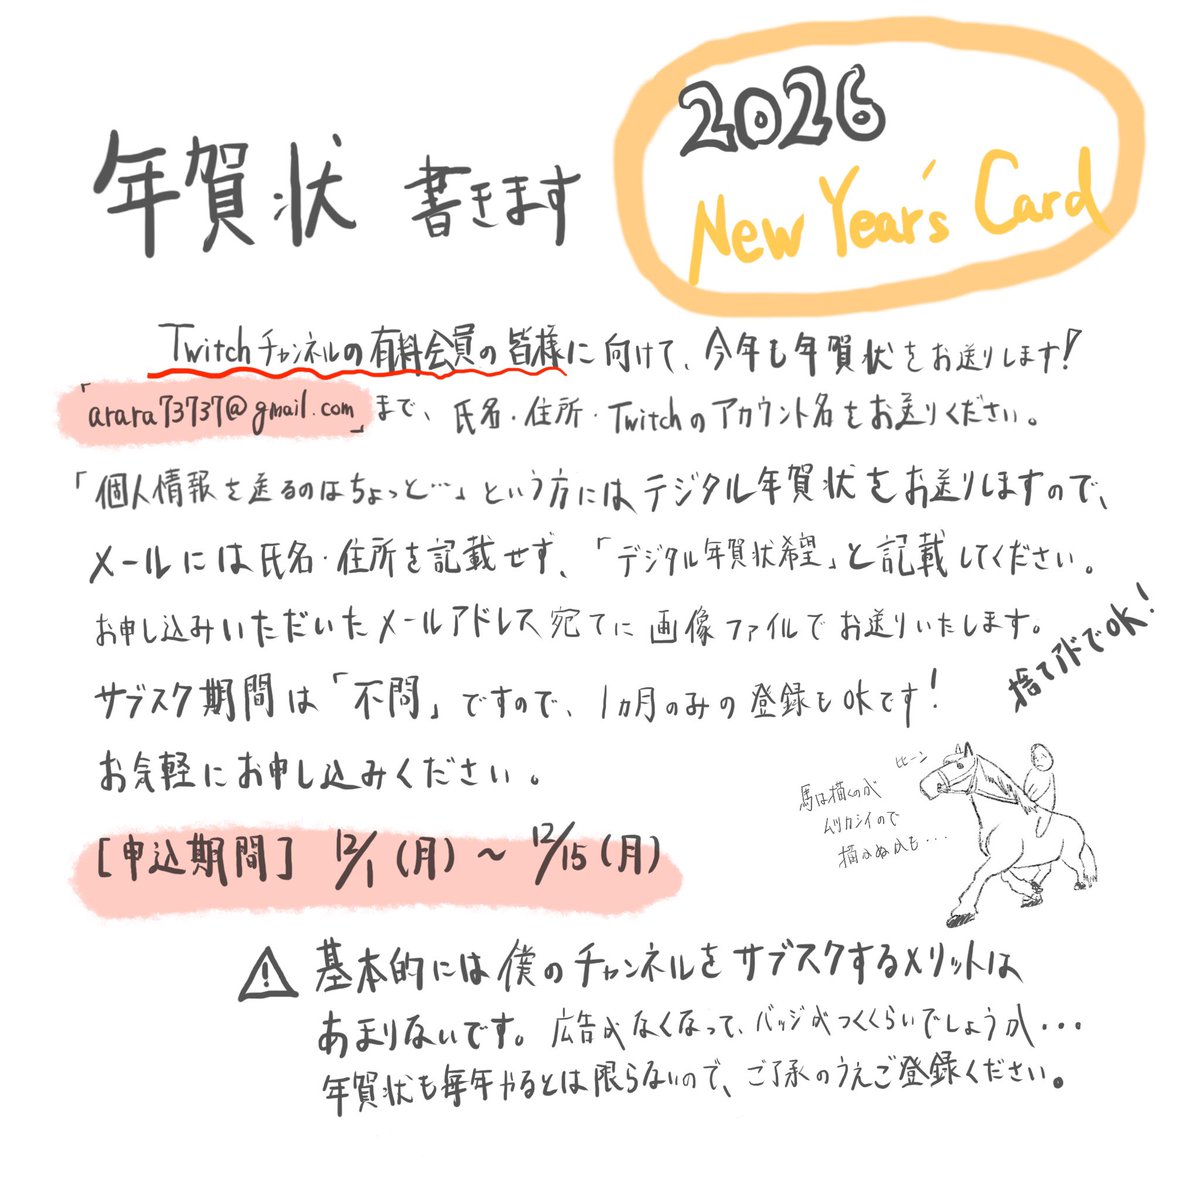 2026
New Year's Card
年賀状 書きます
Twitchチャンネルの有料会員の皆様に向けて、今年も年賀状をお送りします!
「arara73737@gmail.com」まで、氏名・住所・Twitchのアカウント名をお送りください。
「個人情報を送るのはちょっと…」という方にはデジタル年賀状をお送りしますので、
メールには氏名・住所を記載せず、「デジタル年賀状希望」と記載してください。
お申し込みいただいたメールアドレス宛てに画像ファイルでお送りいたします。
捨てアドでOK!
サブスク期間は「不問」ですので、1ヵ月のみの登録もOKです!
お気軽にお申し込みください。
ヒヒーン
馬は描くのが
ムツカシイので
描かぬかも・・・
[申込期間] 12/1(月)~12/15(月)
⚠ 基本的には僕のチャンネルをサブスクするメリットは
あまりないです。広告がなくなって、バッジがつくくらいでしょうか・・・
年賀状も毎年やるとは限らないので、ご了承のうえご登録ください。